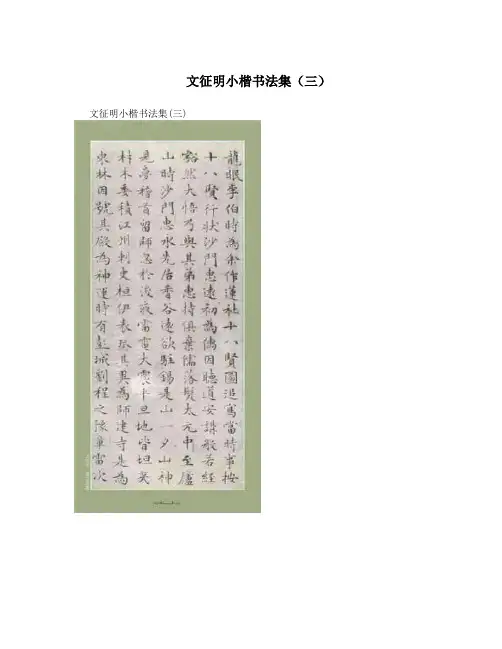 文征明小楷书法集（三）
文征明小楷书法集(三)
龍眠李伯時為余作蓮社十八賢圖追寫當時事按
十八賢行狀沙門惠遠初為儒因聽道安講般若經
豁然大悟乃與其弟惠持俱棄儒落髮太元中至廬
山時沙門惠永先居香谷遠欲駐錫是山一夕山神
見夢稽首留師忽於後夜雷電大震平旦地皆坦夷
材木委積江州刺史桓伊表奏其異為師建寺是為
東林因號其殿為神運時有彭城劉程之豫章雷次